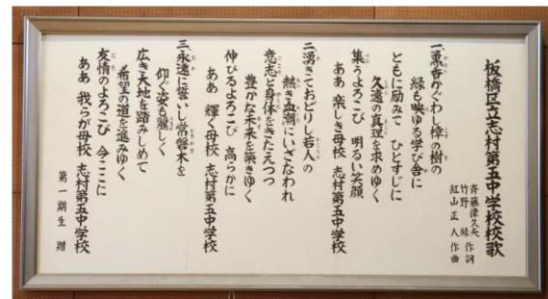 板橋区立志村第五中学校校歌
斉藤律久夫 作詞
竹野 緑 作詞
紅山正人 作曲
一、薫香かぐわし樟の樹の
緑も映ゆる学び舎に
ともに励みて ひとすじに
久遠の真理を求めゆく
集うよろこび 明るい笑顔
ああ 楽しき母校 志村第五中学校
二、湧きておどりし若人の
熱き血潮にいざなわれ
意志と身体をきたえつつ
豊かな未来を築きゆく
伸びるよろこび 高らかに
ああ 輝く母校 志村第五中学校
三、永遠に誓いし常磐木を
仰ぐ姿も麗しく
広き大地を踏みしめて
希望の道を進みゆく
友情のよろこび 今ここに
ああ 我らが母校 志村第五中学校
第一期生 贈